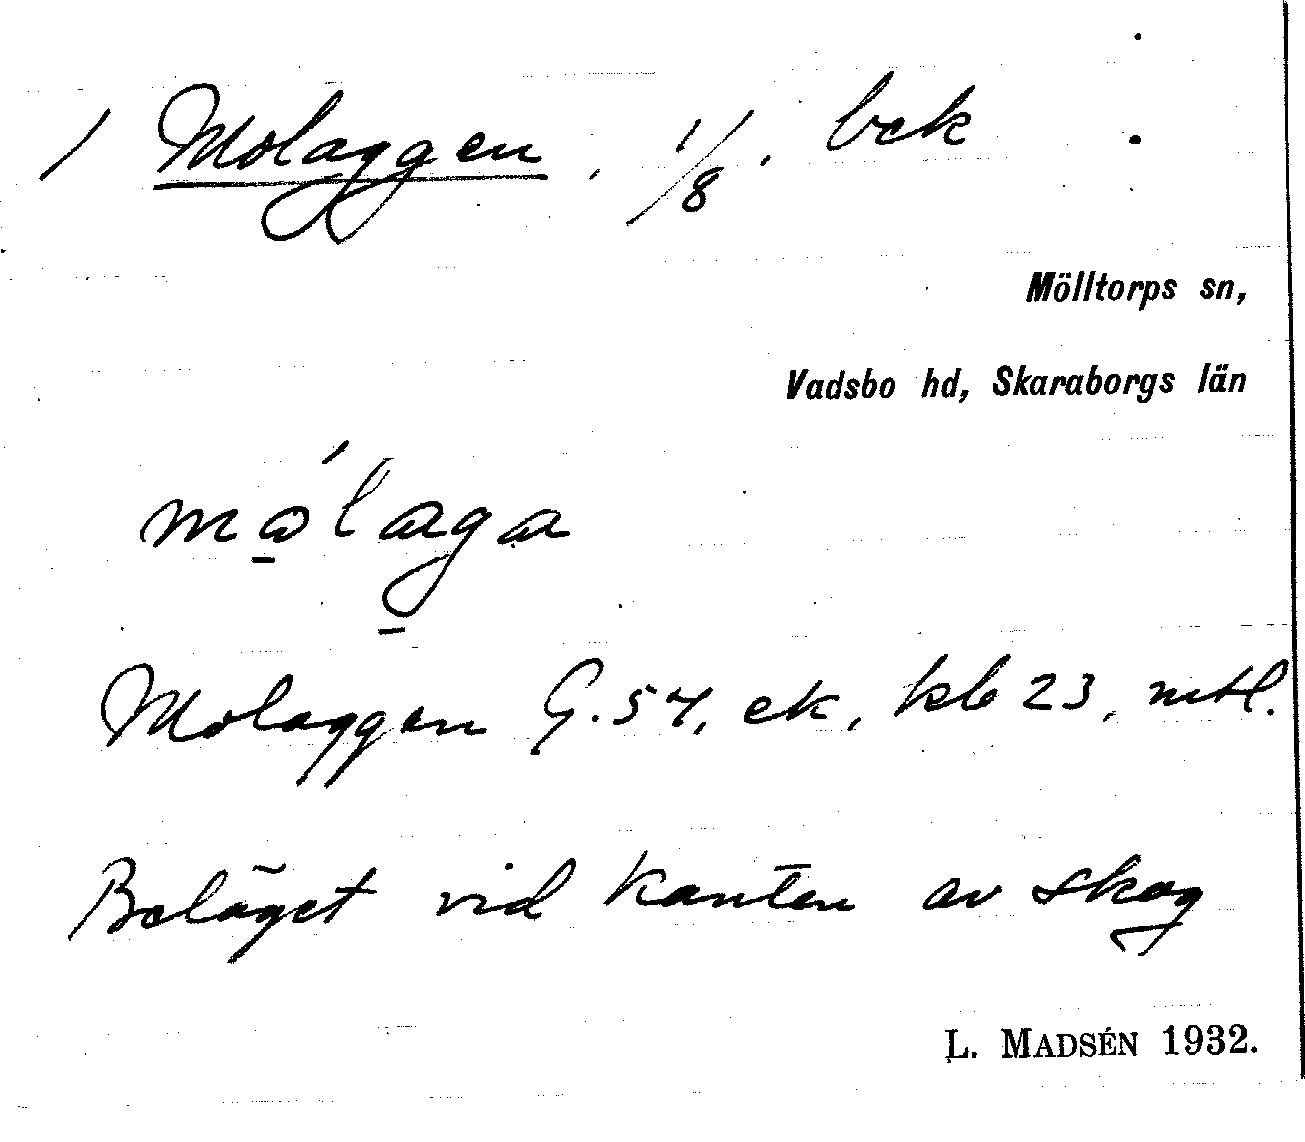 1 Molaggen, 1/8, bek
Mölltorps sn,
Vadsbo hd, Skaraborgs län
Molaggen G. 54, ek, kb 23, mtl.
Beläget vid kanten av skog
L. MADSÉN 1932.